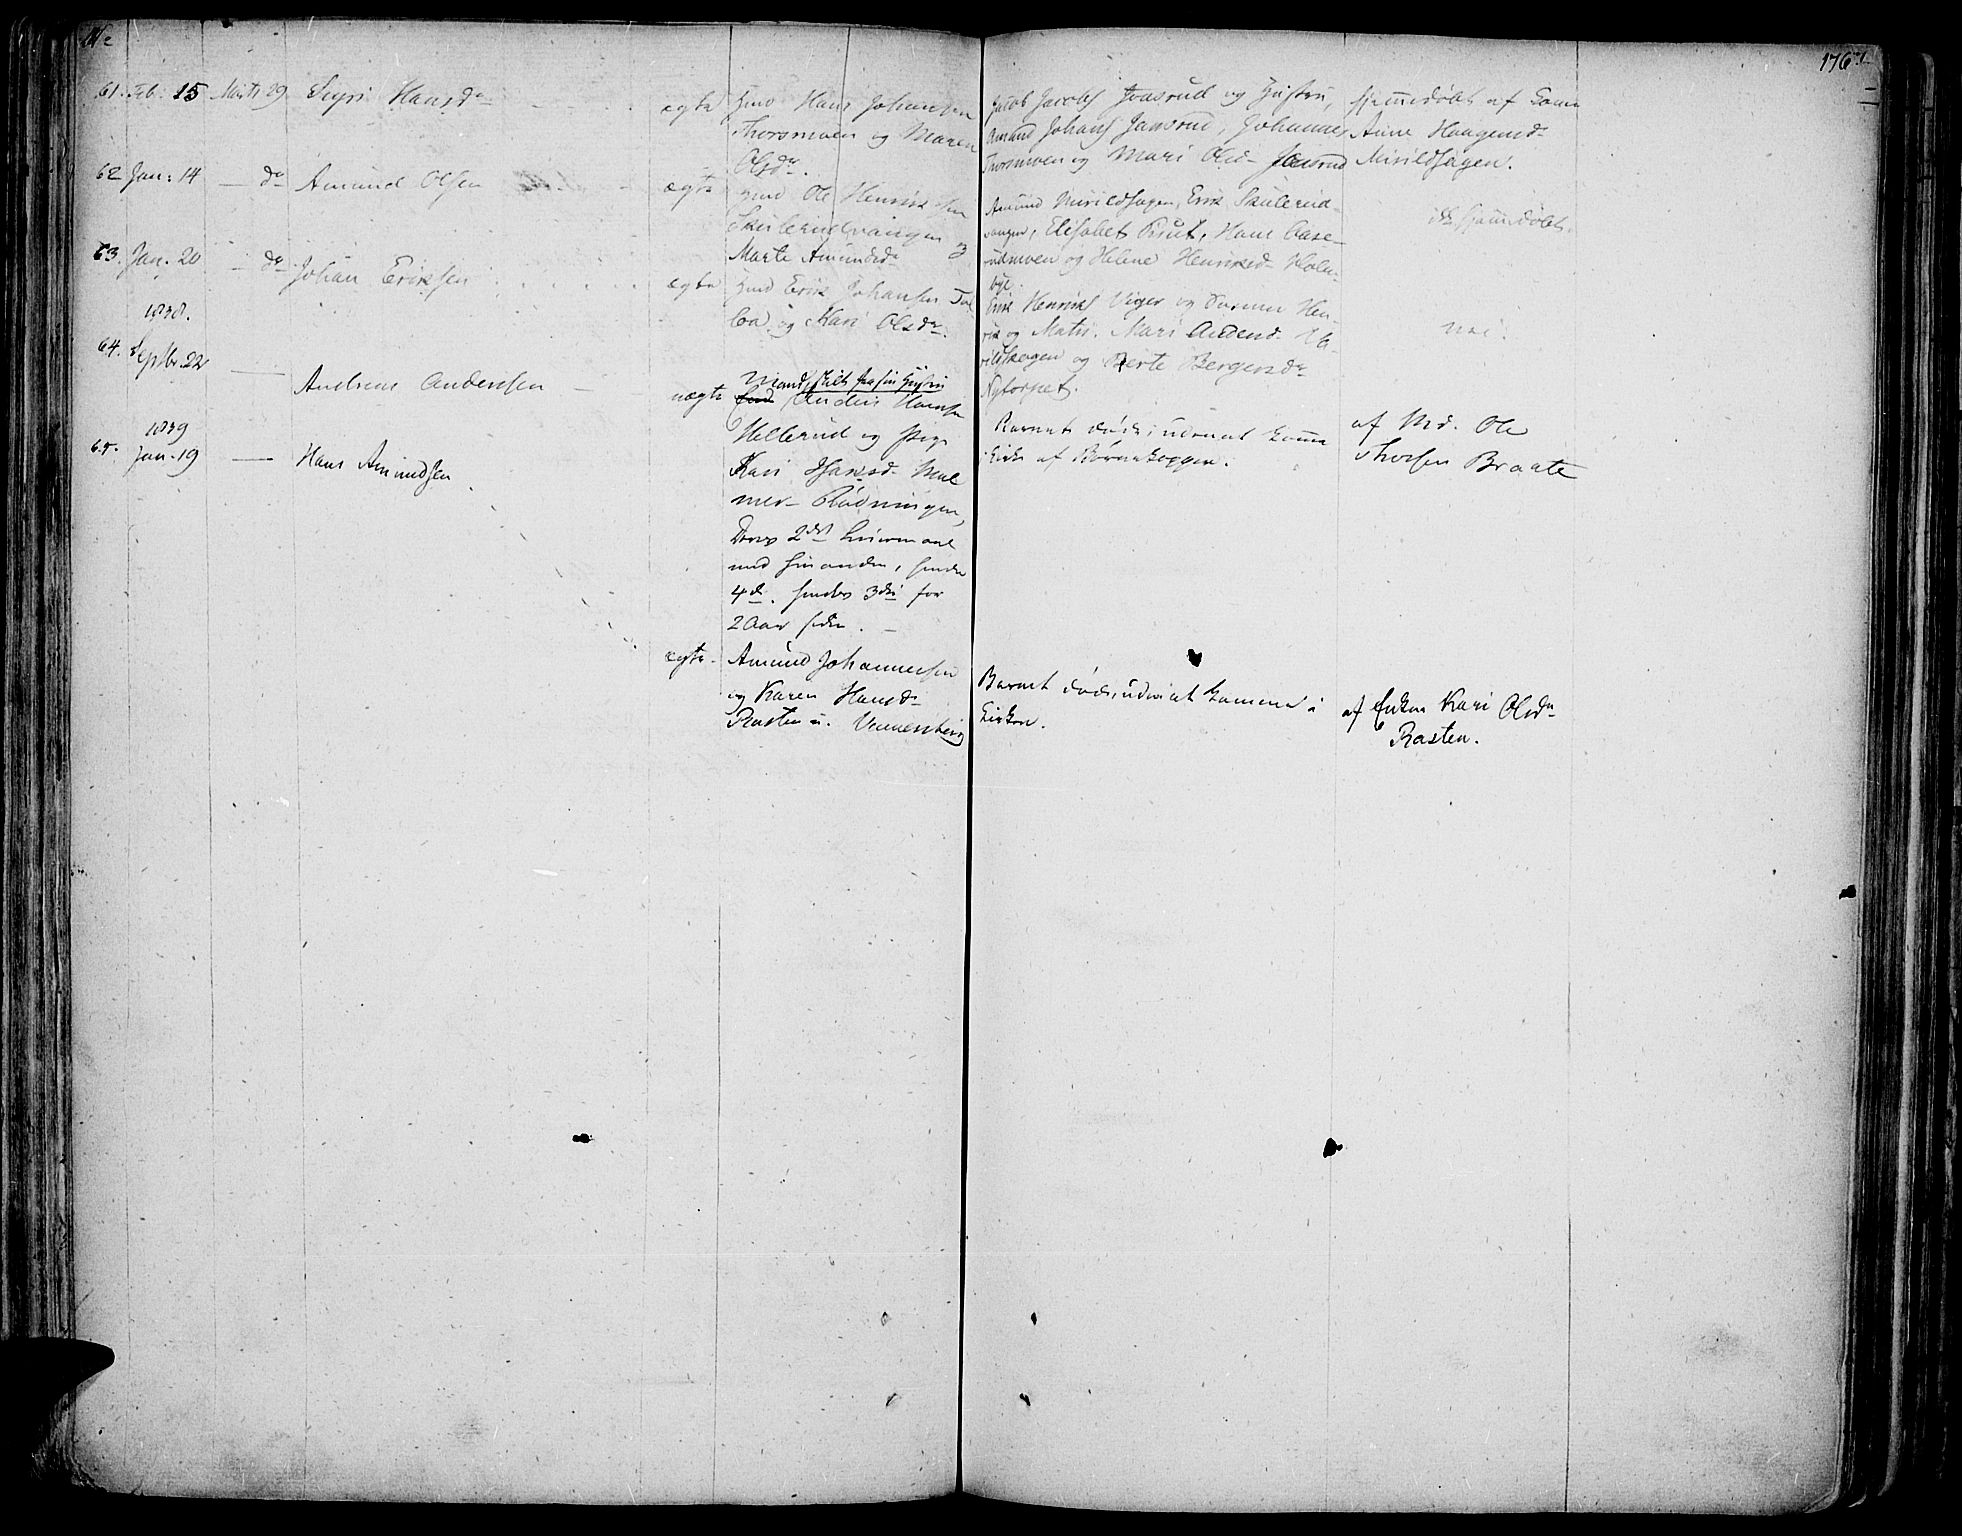 176
61. Feb. 15 Marts 29 Sigri Hansdr ægte Gmd Hans Johansen
Thorsmoen og Maren
Olsdr.
Jacob Jacobs og Hustru,
Amund Johans Jansrud, Johannes
Thorsmoen og Mari Olsd. Jansrud
hjemmedøbt af Kone
Anne Haagensdr
Mirildhagen.
62 Jan: 14 — do Amund Olsen ægte Gmd Ole Henriksen
Skulerudvangen og
Marte Amundsdr
Amund Mirildhagen, Erik Skulerud-
vangen, Elisabet Brut, Hans Aase-
rudmoen og Helene Henriksd. Holm-
bye.
ikke hjemmedøbt.
63. Jan. 20 — do Johan Eriksen ægte Gmd Erik Johansen
og Kari Olsdr.
Erik Henriks Viger og Hen-
rik og Mats. Mari Andersd.
og Berte Bergersdr
Nytorpet.
nei.
1838.
64. Septbr. 22 — Andreas Andersen — uægte Mand, skilt fra sin Hustru
Anders Hansen
Hellerud og Pige
Kari Hansd.
Rødningen,
Deres 2det Leiermaal
med hinanden, hendes
4de. hendes 3die for
2 Aar siden. —
Barnet døde, uden at komme
i Kirke af Børnekopper.
af Md. Ole
Thorsen Braate
1839
65. Jan. 19 — Hans Amundsen. ægte. Amund Johannesen
og Karen Hansdr
Rasten u. Vennersberg
Barnet døde, uden at komme i
Kirken.
af Enken Kari Olsdr
Rasten.